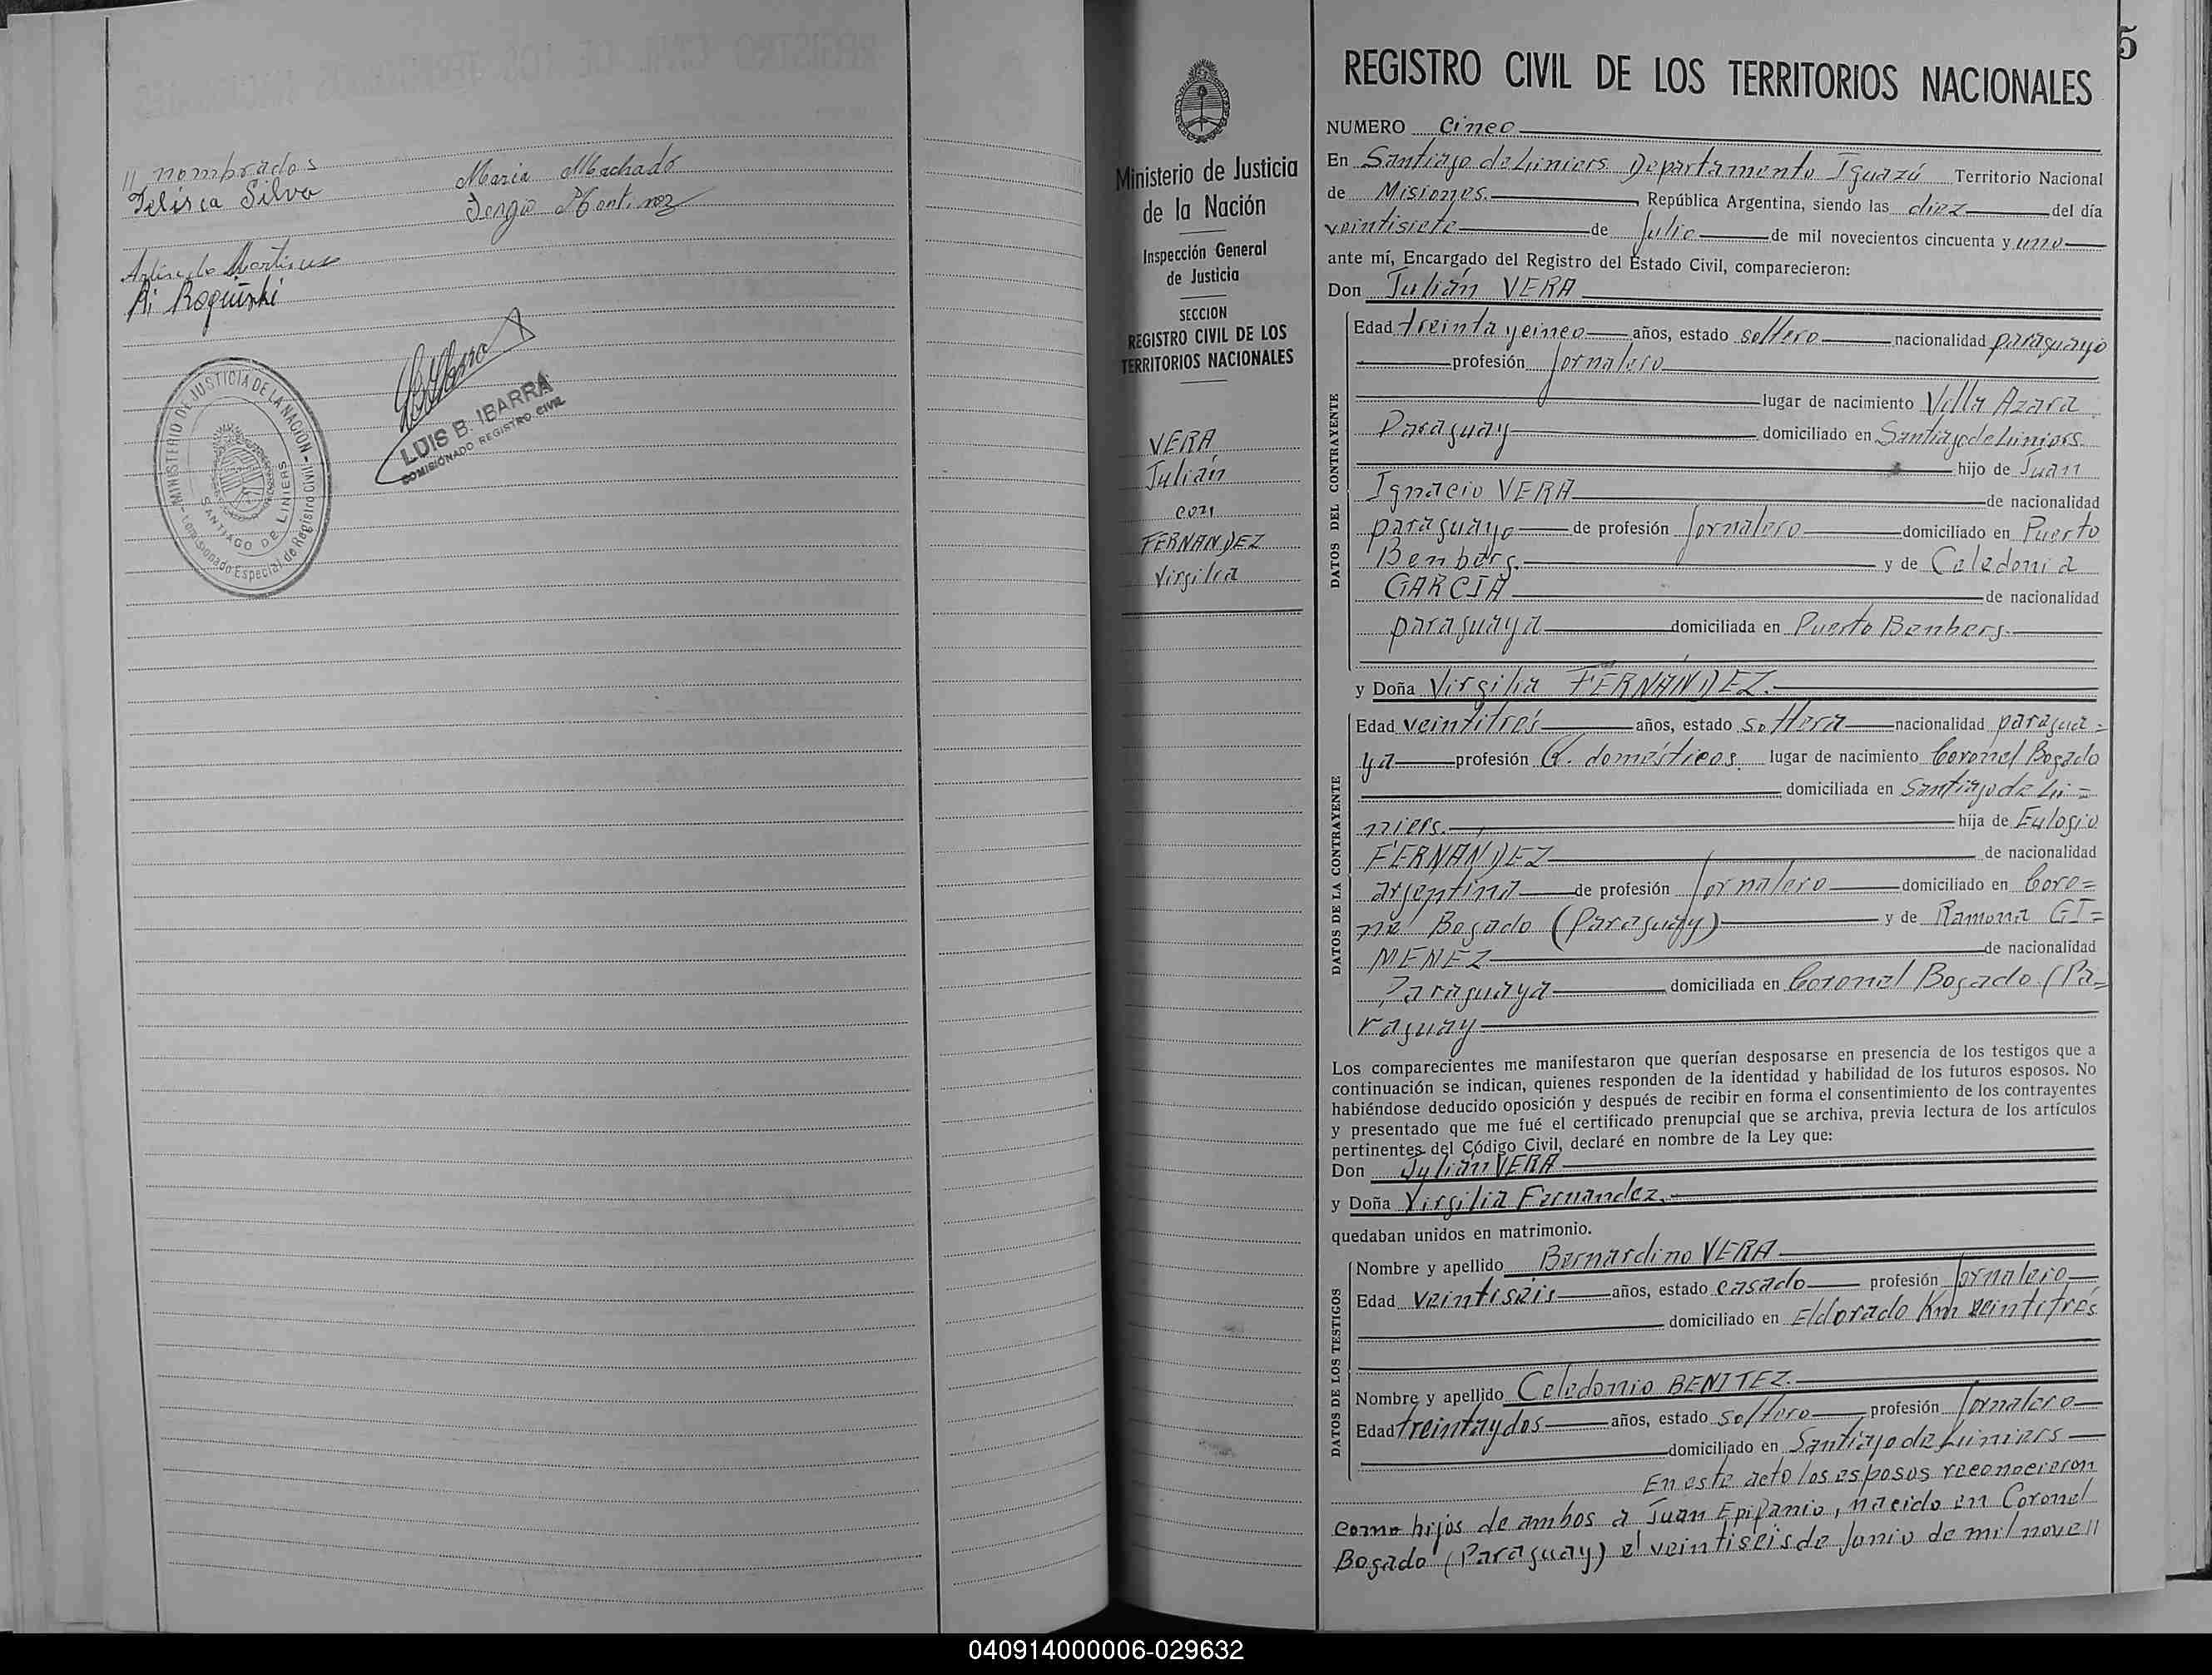 // nombrados
Felisia Silva
Maria Machado
Sergio Montinez
Arlindo Martinez
LUIS B. IBARRA
COMISIONADO REGISTRO CIVIL
MINISTERIO DE JUSTICIA DE LA NACION
Comisionado Especial de Registro Civil
SANTIAGO DE LINIERS
Ministerio de Justicia
de la Nación
Inspección General
de Justicia
SECCION
REGISTRO CIVIL DE LOS
TERRITORIOS NACIONALES
VERA
Julián
con
FERNANDEZ
Virgilia
5
REGISTRO CIVIL DE LOS TERRITORIOS NACIONALES
NUMERO cinco
En Santiago de Liniers Departamento Iguazú Territorio Nacional
de Misiones. , República Argentina, siendo las diez del día
veintisiete de Julio de mil novecientos cincuenta y uno
ante mí, Encargado del Registro del Estado Civil, comparecieron:
Don Julián VERA
DATOS DEL CONTRAYENTE
Edad treinta y cinco años, estado soltero nacionalidad paraguayo
profesión Jornalero
lugar de nacimiento Villa Azara
Paraguay domiciliado en Santiago de Liniers
hijo de Juan
Ignacio VERA de nacionalidad
paraguayo de profesión Jornalero domiciliado en Puerto
Benberg. y de Celedonia
GARCIA de nacionalidad
paraguaya domiciliada en Puerto Benberg.
y Doña Virgilia FERNÁNDEZ.
DATOS DE LA CONTRAYENTE
Edad veintitrés años, estado soltera nacionalidad paragua=
ya profesión Q. domésticos. lugar de nacimiento Coronel Bogado
domiciliada en Santiago de Li=
niers. hija de Eulogio
FERNÁNDEZ de nacionalidad
argentina de profesión Jornalero domiciliado en Coro=
nel Bogado (Paraguay) y de Ramona GI=
MENEZ de nacionalidad
Paraguaya domiciliada en Coronel Bogado (Pa=
raguay
Los comparecientes me manifestaron que querían desposarse en presencia de los testigos que a
continuación se indican, quienes responden de la identidad y habilidad de los futuros esposos. No
habiéndose deducido oposición y después de recibir en forma el consentimiento de los contrayentes
y presentado que me fué el certificado prenupcial que se archiva, previa lectura de los artículos
pertinentes del Código Civil, declaré en nombre de la Ley que:
Don Julián VERA
y Doña Virgilia Fernandez.
quedaban unidos en matrimonio.
DATOS DE LOS TESTIGOS
Nombre y apellido Bernardino VERA
Edad veintiseis años, estado casado profesión Jornalero
domiciliado en Eldorado Km veintitrés
Nombre y apellido Celedonio BENITEZ.
Edad treinta y dos años, estado soltero profesión Jornalero
domiciliado en Santiago de Liniers
En este acto los esposos reconocieron
como hijos de ambos a Juan Epifanio, nacido en Coronel
Bogado (Paraguay) el veintiseis de Junio de mil nove//
040914000006-029632